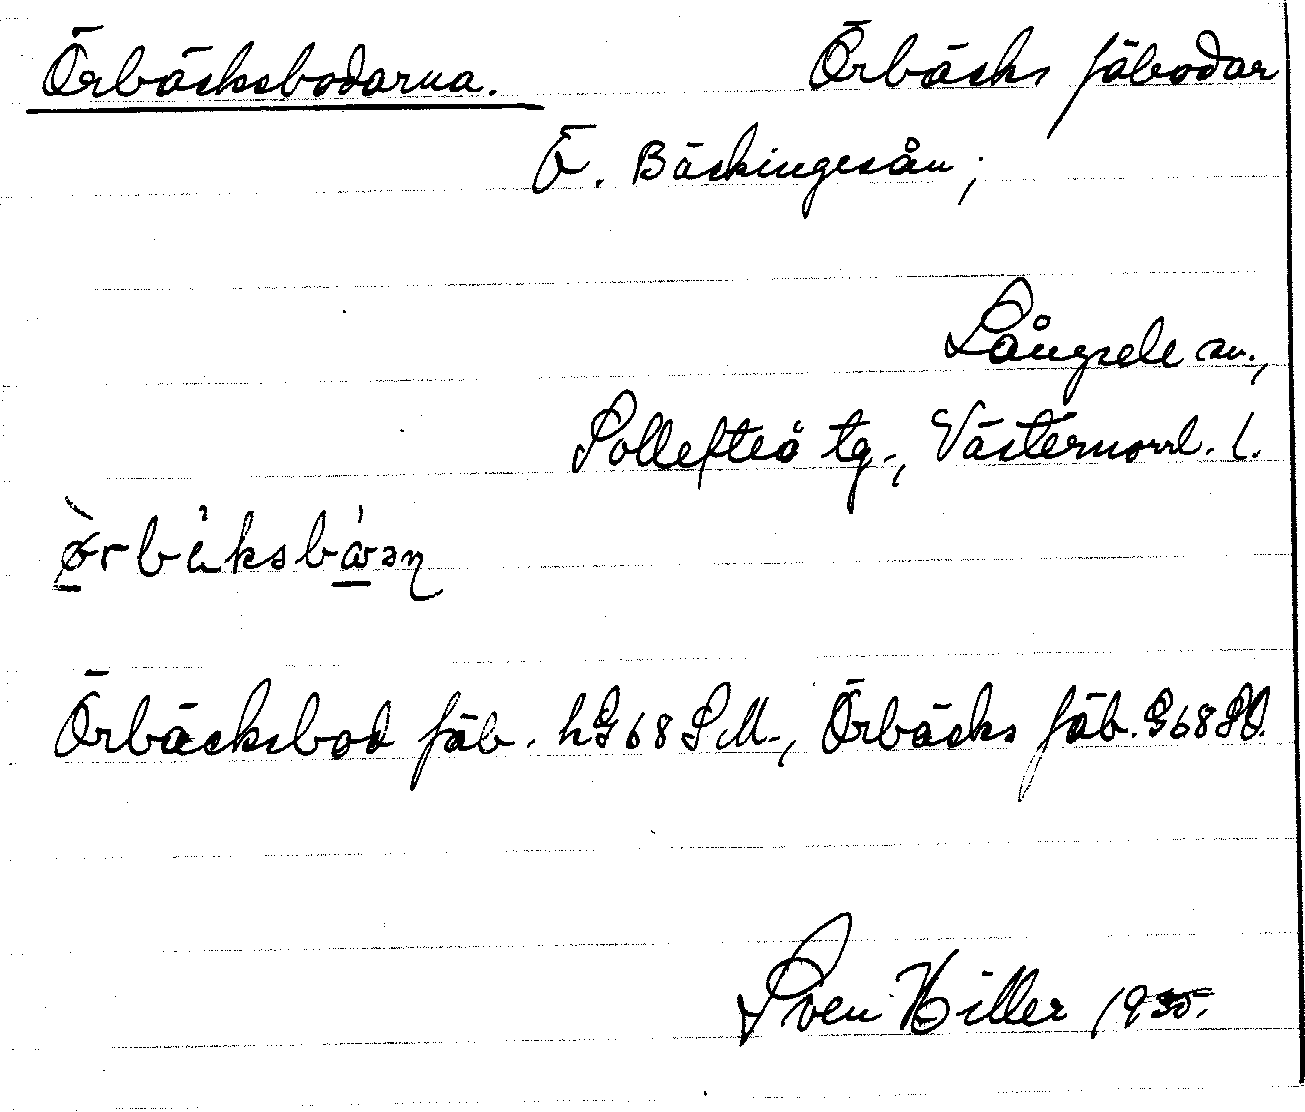 Örbäcksbodarna. Örbäcks fäbodar
Ö. Bäckingesån;
Långsele sn.,
Sollefteå tg., Västernorrl. l.
Örbäcksbod fäb. hG68SM., Örbäcks fäb. G68SO.
Sven Hiller 1935.